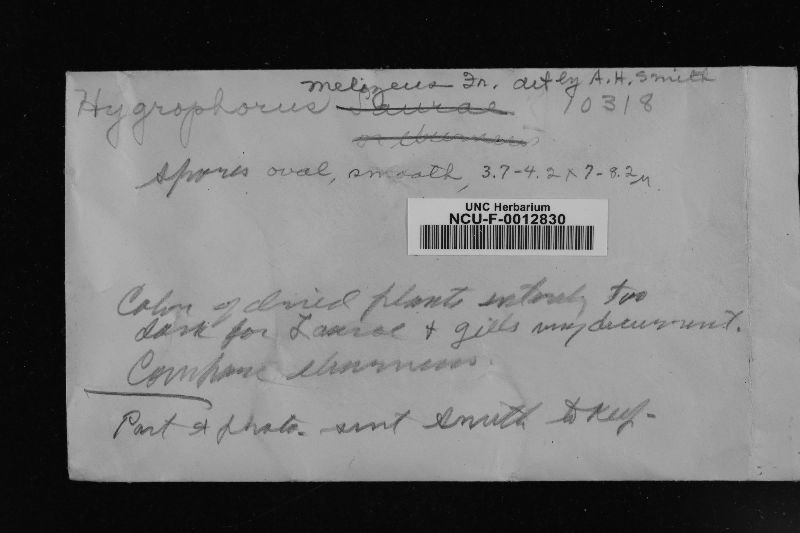 melizeus Fr. det by A.H. Smith
Hygrophorus Laurae 10318
or eburneus
spores oval, smooth, 3.7-4.2 x 7-8.2 µ
UNC Herbarium
NCU-F-0012830
Color of dried plants entirely too
dark for Laurae & gills very decurrent.
Compare eburneus.
Part & photo. sent Smith to keep-